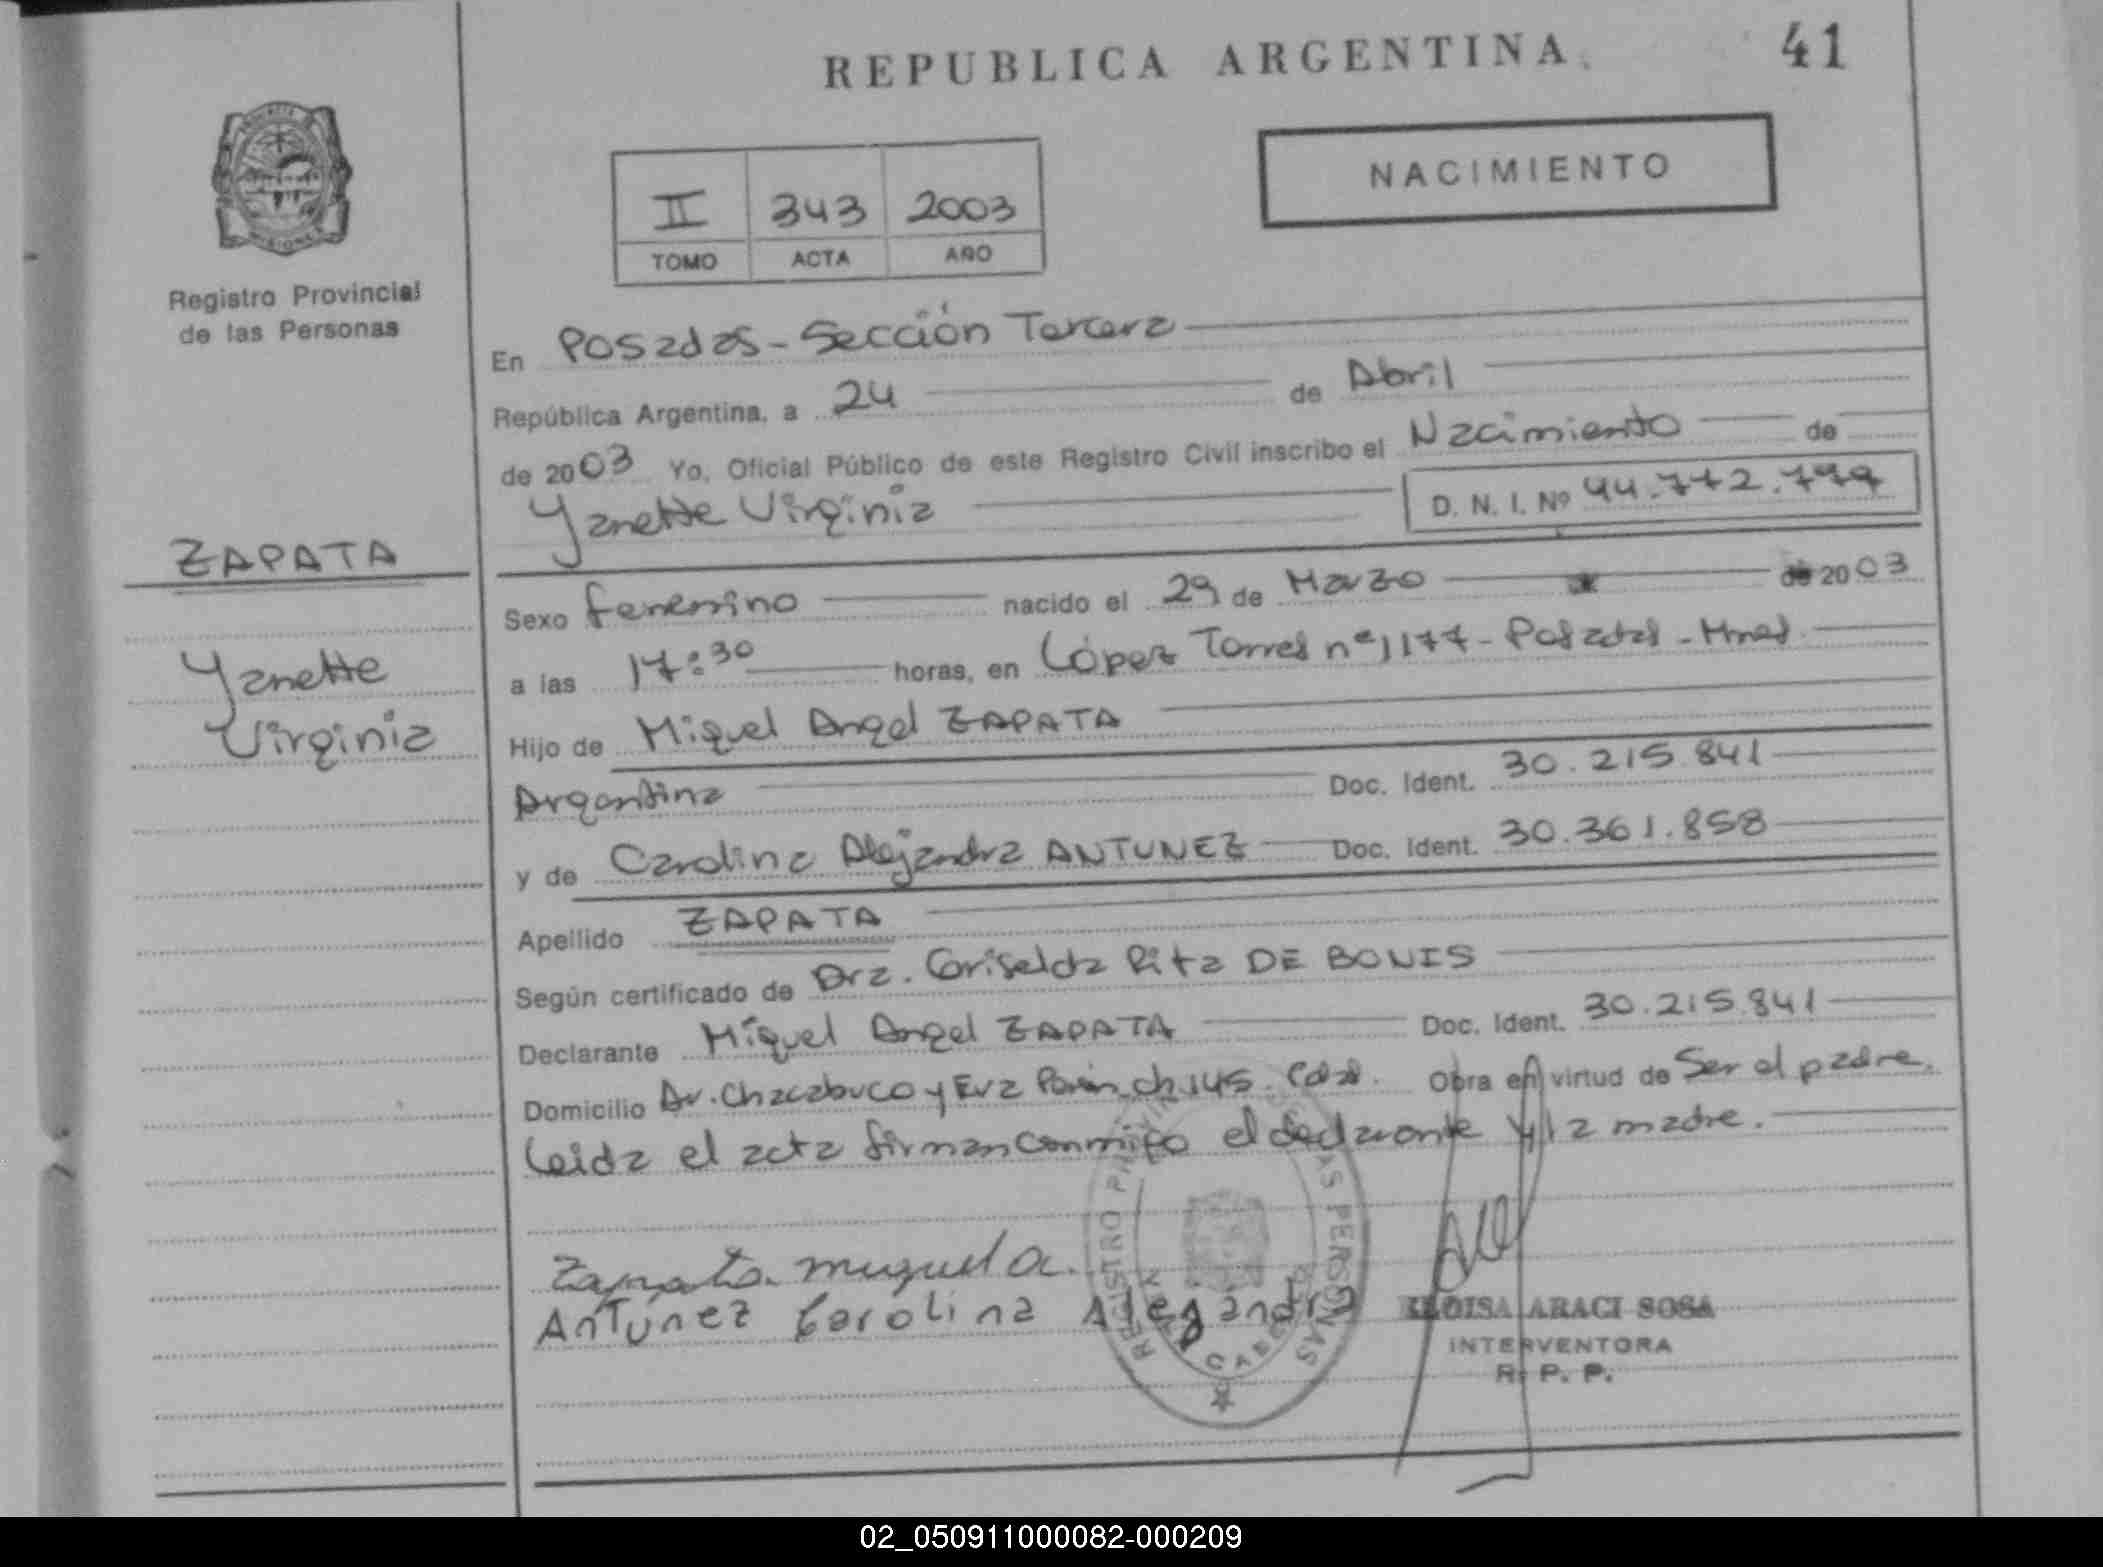 REPUBLICA ARGENTINA
41
NACIMIENTO
II 343 2003
TOMO ACTA AÑO
MISIONES
Registro Provincial
de las Personas
En Posadas - Sección Tercera
República Argentina, a 24 de Abril
de 2003 Yo, Oficial Público de este Registro Civil inscribo el Nacimiento de
Yanette Virginia D. N. I. Nº 44.772.779
ZAPATA
Yanette
Virginia
Sexo femenino nacido el 29 de Marzo de 2003
a las 17:30 horas, en López Torres nº 1177 - Posadas - Mnes.
Hijo de Miguel Angel ZAPATA
Argentina Doc. Ident. 30.215.841
y de Carolina Alejandra ANTUNEZ Doc. Ident. 30.361.858
Apellido ZAPATA
Según certificado de Dra. Griselda Rita DE BONIS
Declarante Miguel Angel ZAPATA Doc. Ident. 30.215.841
Domicilio Av. Chacabuco y Eva Perón ch 145. Cdad. Obra en virtud de Ser el padre.
Leida el acta firman conmigo el declarante y la madre.
Zapata Miguel a.
Antúnez Carolina Alegándra
REGISTRO PERSONAS
ELOISA ARACI SOSA
INTERVENTORA
R. P. P.
02_050911000082-000209